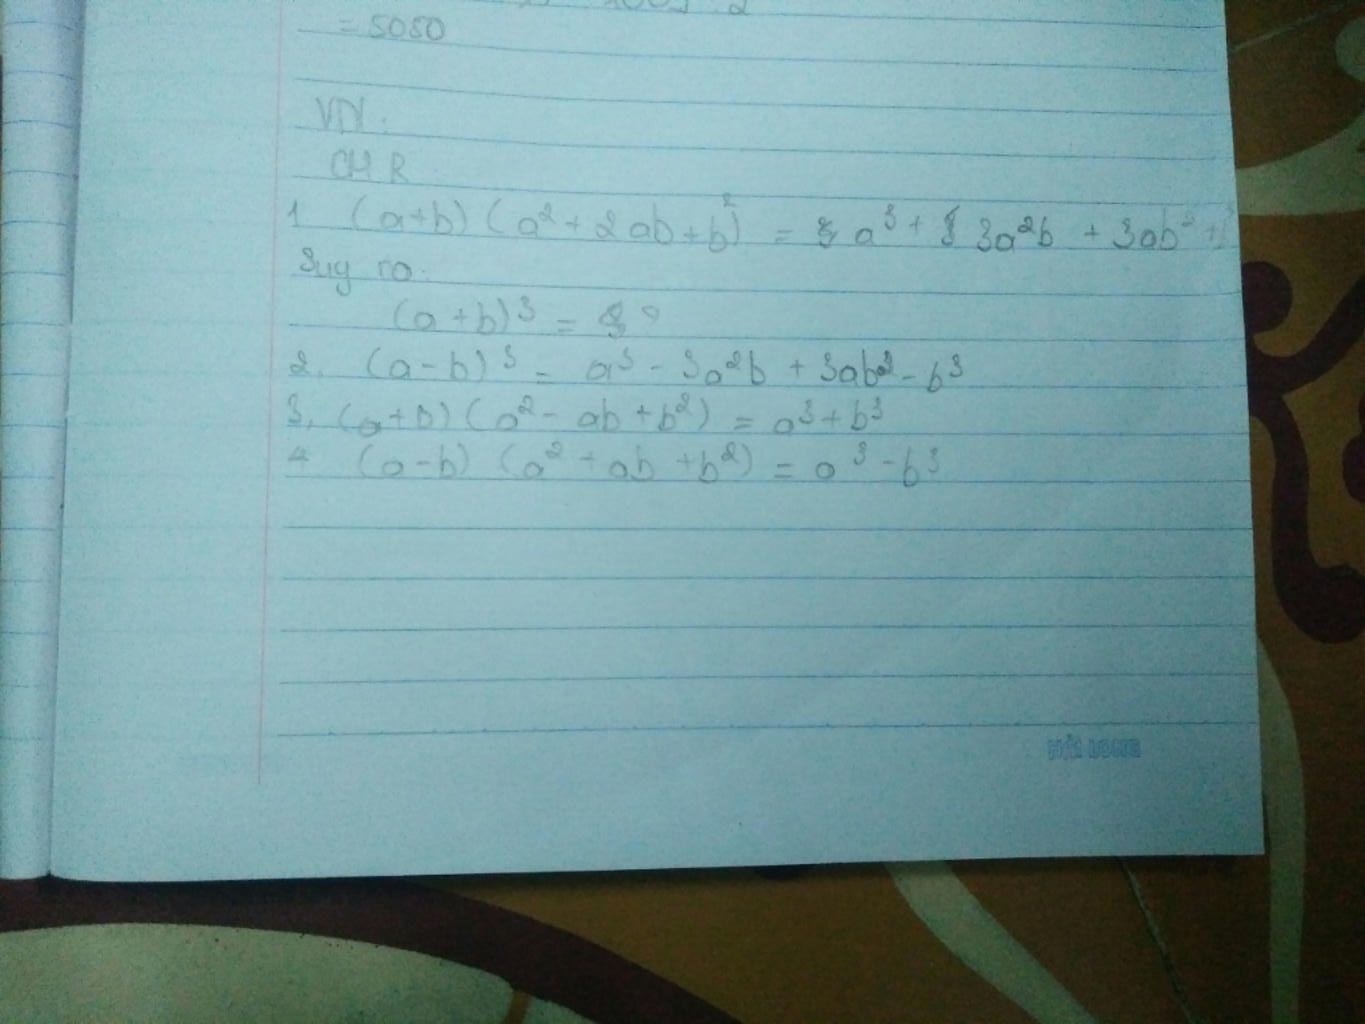 = 5050
VN.
CMR
1 (a+b) (a² + 2ab + b²) = a³ + 3a²b + 3ab² +
Suy ra:
(a+b)³ = ?
2. (a-b)³ = a³ - 3a²b + 3ab² - b³
3. (a+b) (a² - ab + b²) = a³ + b³
4 (a-b) (a² + ab + b²) = a³ - b³
HẢI LONG